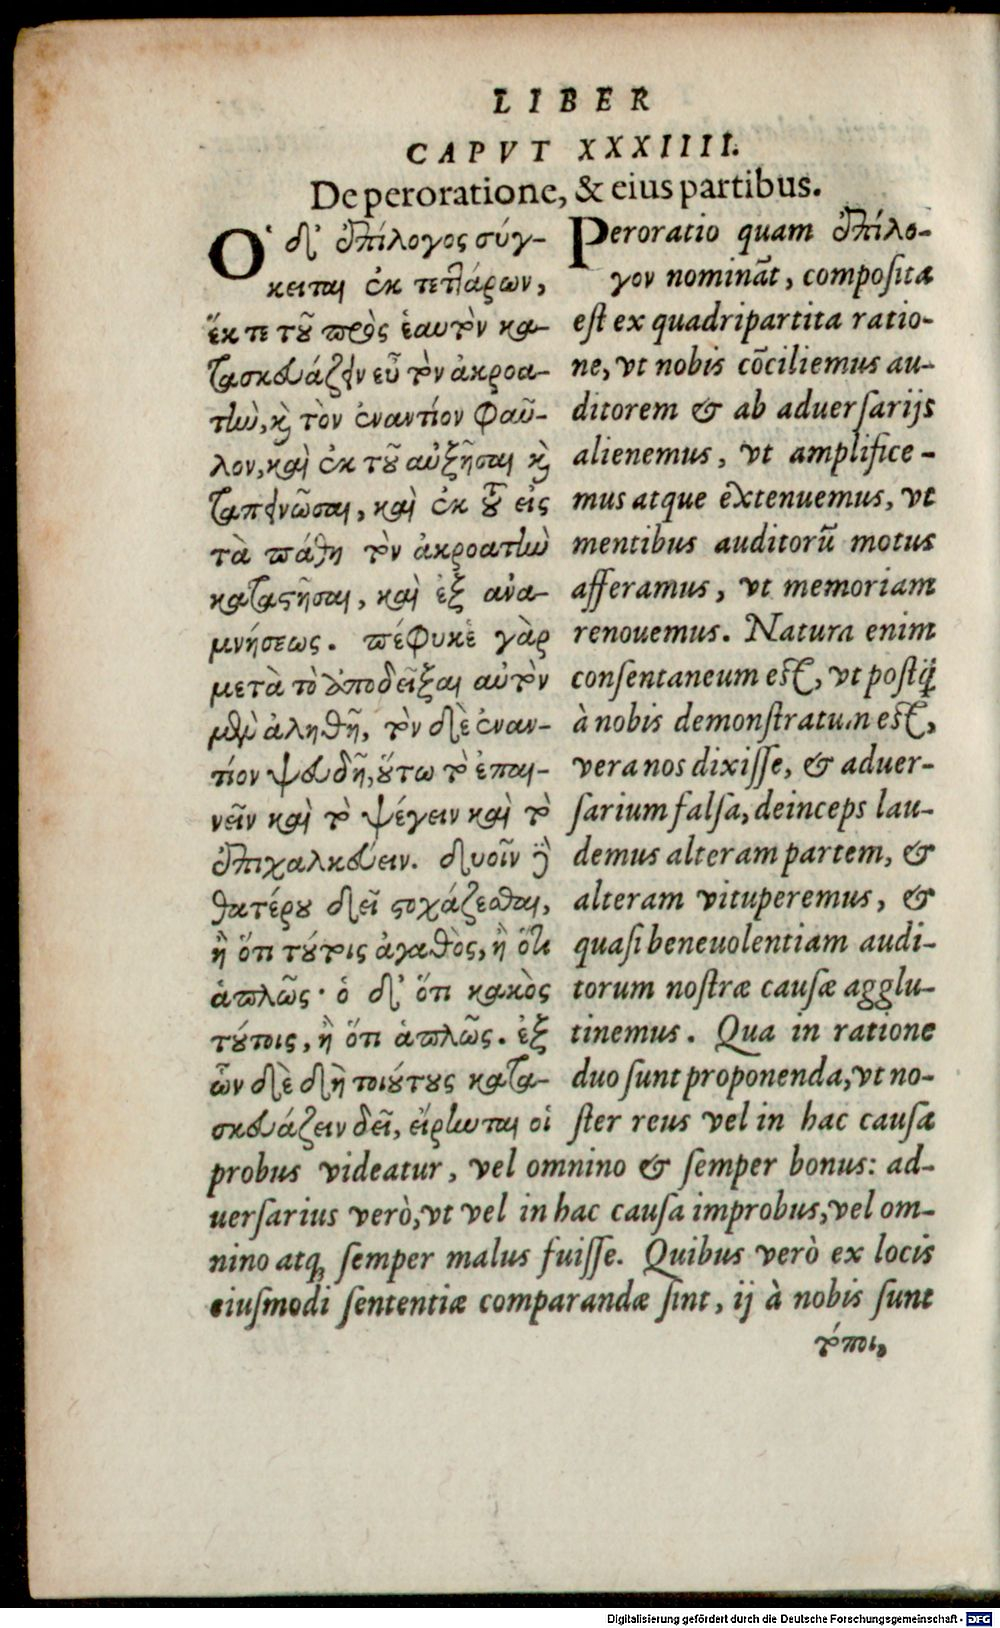 LIBER
CAPVT XXXIIII.
De peroratione, & eius partibus.
Ὁ δ' ἐπίλογος σύγ-
κειται ἐκ τεττάρων,
ἔκ τε τοῦ πρὸς ἑαυτὸν κα-
τασκευάζειν εὖ τὸν ἀκροα-
τὴν, καὶ τὸν ἐναντίον φαῦ-
λον, καὶ ἐκ τοῦ αὐξῆσαι καὶ
ταπεινῶσαι, καὶ ἐκ τοῦ εἰς
τὰ πάθη τὸν ἀκροατὴν
καταστῆσαι, καὶ ἐξ ἀνα-
μνήσεως. πέφυκε γὰρ
μετὰ τὸ ἀποδεῖξαι αὐτὸν
μὲν ἀληθῆ, τὸν δὲ ἐναν-
τίον ψευδῆ, οὕτω τὸ ἐπαι-
νεῖν καὶ τὸ ψέγειν καὶ τὸ
ἐπιχαλκεύειν. δυοῖν δὲ
θατέρου δεῖ στοχάζεσθαι,
ἢ ὅτι τούτοις ἀγαθὸς, ἢ ὅτι
ἁπλῶς· ὁ δ' ὅτι κακὸς
τούτοις, ἢ ὅτι ἁπλῶς. ἐξ
ὧν δὲ δὴ τοιούτους κατα-
σκευάζειν δεῖ, εἴρηνται οἱ
Peroratio quam ἐπίλο-
γον nomināt, composita
est ex quadripartita ratio-
ne, vt nobis cōciliemus au-
ditorem & ab aduersarijs
alienemus, vt amplifice-
mus atque extenuemus, vt
mentibus auditorū motus
afferamus, vt memoriam
renouemus. Natura enim
consentaneum est, vt postq̃
à nobis demonstratum est,
vera nos dixisse, & aduer-
sarium falsa, deinceps lau-
demus alteram partem, &
alteram vituperemus, &
quasi beneuolentiam audi-
torum nostræ causæ agglu-
tinemus. Qua in ratione
duo sunt proponenda, vt no-
ster reus vel in hac causa
probus videatur, vel omnino & semper bonus: ad-
uersarius verò, vt vel in hac causa improbus, vel om-
nino atq; semper malus fuisse. Quibus verò ex locis
eiusmodi sententiæ comparandæ sint, ij à nobis sunt
τόποι,
Digitalisierung gefördert durch die Deutsche Forschungsgemeinschaft - DFG